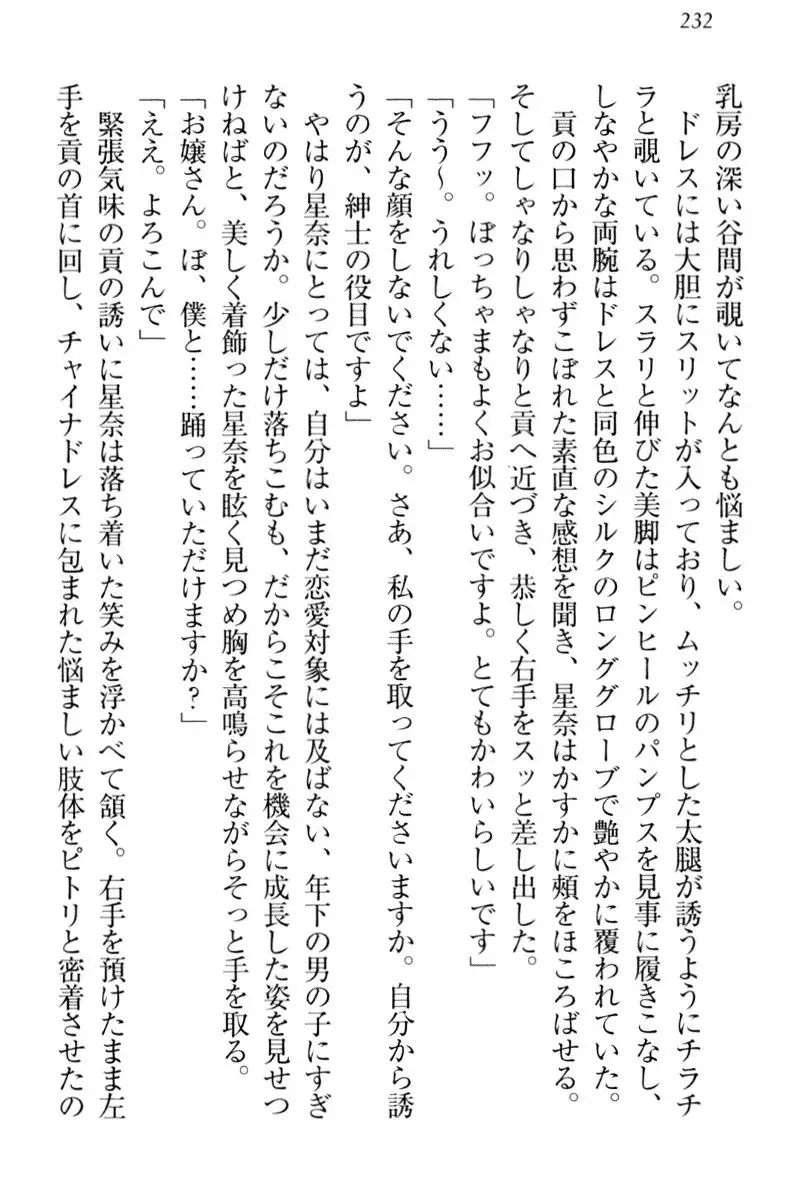 232
乳房の深い谷間が覗いてなんとも悩ましい。
ドレスには大胆にスリットが入っており、ムッチリとした太腿が誘うようにチラチ
ラと覗いている。スラリと伸びた美脚はピンヒールのパンプスを見事に履きこなし、
しなやかな両腕はドレスと同色のシルクのロンググローブで艶やかに覆われていた。
貢の口から思わずこぼれた素直な感想を聞き、星奈はかすかに頰をほころばせる。
そしてしゃなりしゃなりと貢へ近づき、恭しく右手をスッと差し出した。
「フフッ。ぼっちゃまもよくお似合いですよ。とてもかわいらしいです」
「うう〜。うれしくない……」
「そんな顔をしないでください。さあ、私の手を取ってくださいますか。自分から誘
うのが、紳士の役目ですよ」
やはり星奈にとっては、自分はいまだ恋愛対象には及ばない、年下の男の子にすぎ
ないのだろうか。少しだけ落ちこむも、だからこそこれを機会に成長した姿を見せつ
けねばと、美しく着飾った星奈を眩く見つめ胸を高鳴らせながらそっと手を取る。
「お嬢さん。ぼ、僕と……踊っていただけますか?」
「ええ。よろこんで」
緊張気味の貢の誘いに星奈は落ち着いた笑みを浮かべて頷く。右手を預けたまま左
手を貢の首に回し、チャイナドレスに包まれた悩ましい肢体をピトリと密着させたの